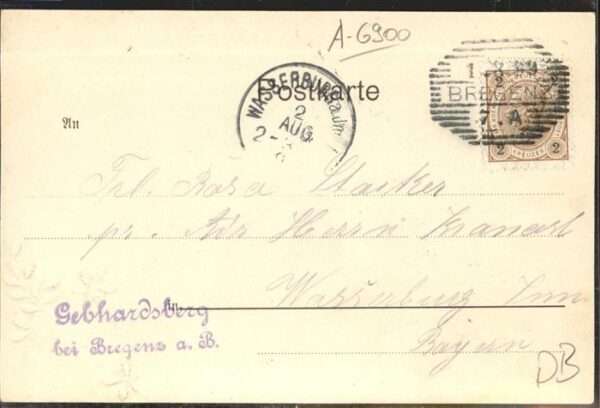 A-6900
Postkarte
WASSERBURG a. Inn
2
AUG
2-3
An
1 8 99
BREGENZ
7 A
2 KREUZER 2
Frl. Rosa Stocker
pr. Adr Herrn Kranarl
Wasserburg Inn
in
Bayern
Gebhardsberg
bei Bregenz a. B.
DB